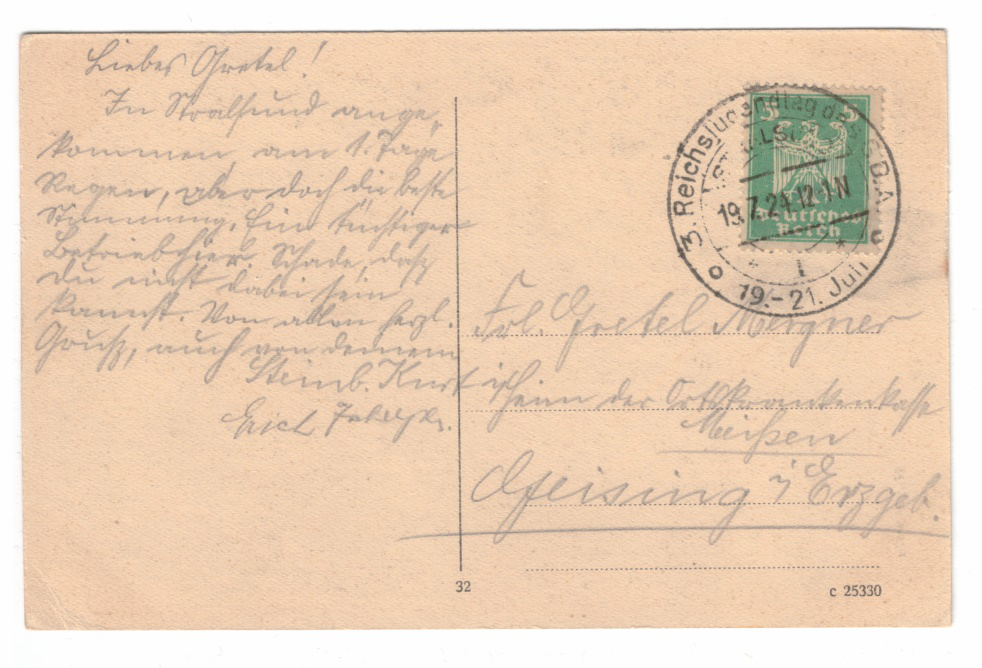 Liebes Gretel!
In Stralsund ange-
kommen, am 1. Tage
Regen, aber doch die beste
Stimmung. Ein tüchtiger
Betrieb hier. Schade, daß
du nicht dabei sein
kannst. Von allen herzl.
Gruß, auch von deinem
Steinb. Kurt
Erich
3. Reichsjugendtag des G.D.A.
19.7.29.12-1N
19.-21. Juli
5 5
Deutsches
Reich
Frl. Gretel
Heim der Ortskrankenkasse
Meißen
Geising i/ Erzgeb.
32
c 25330